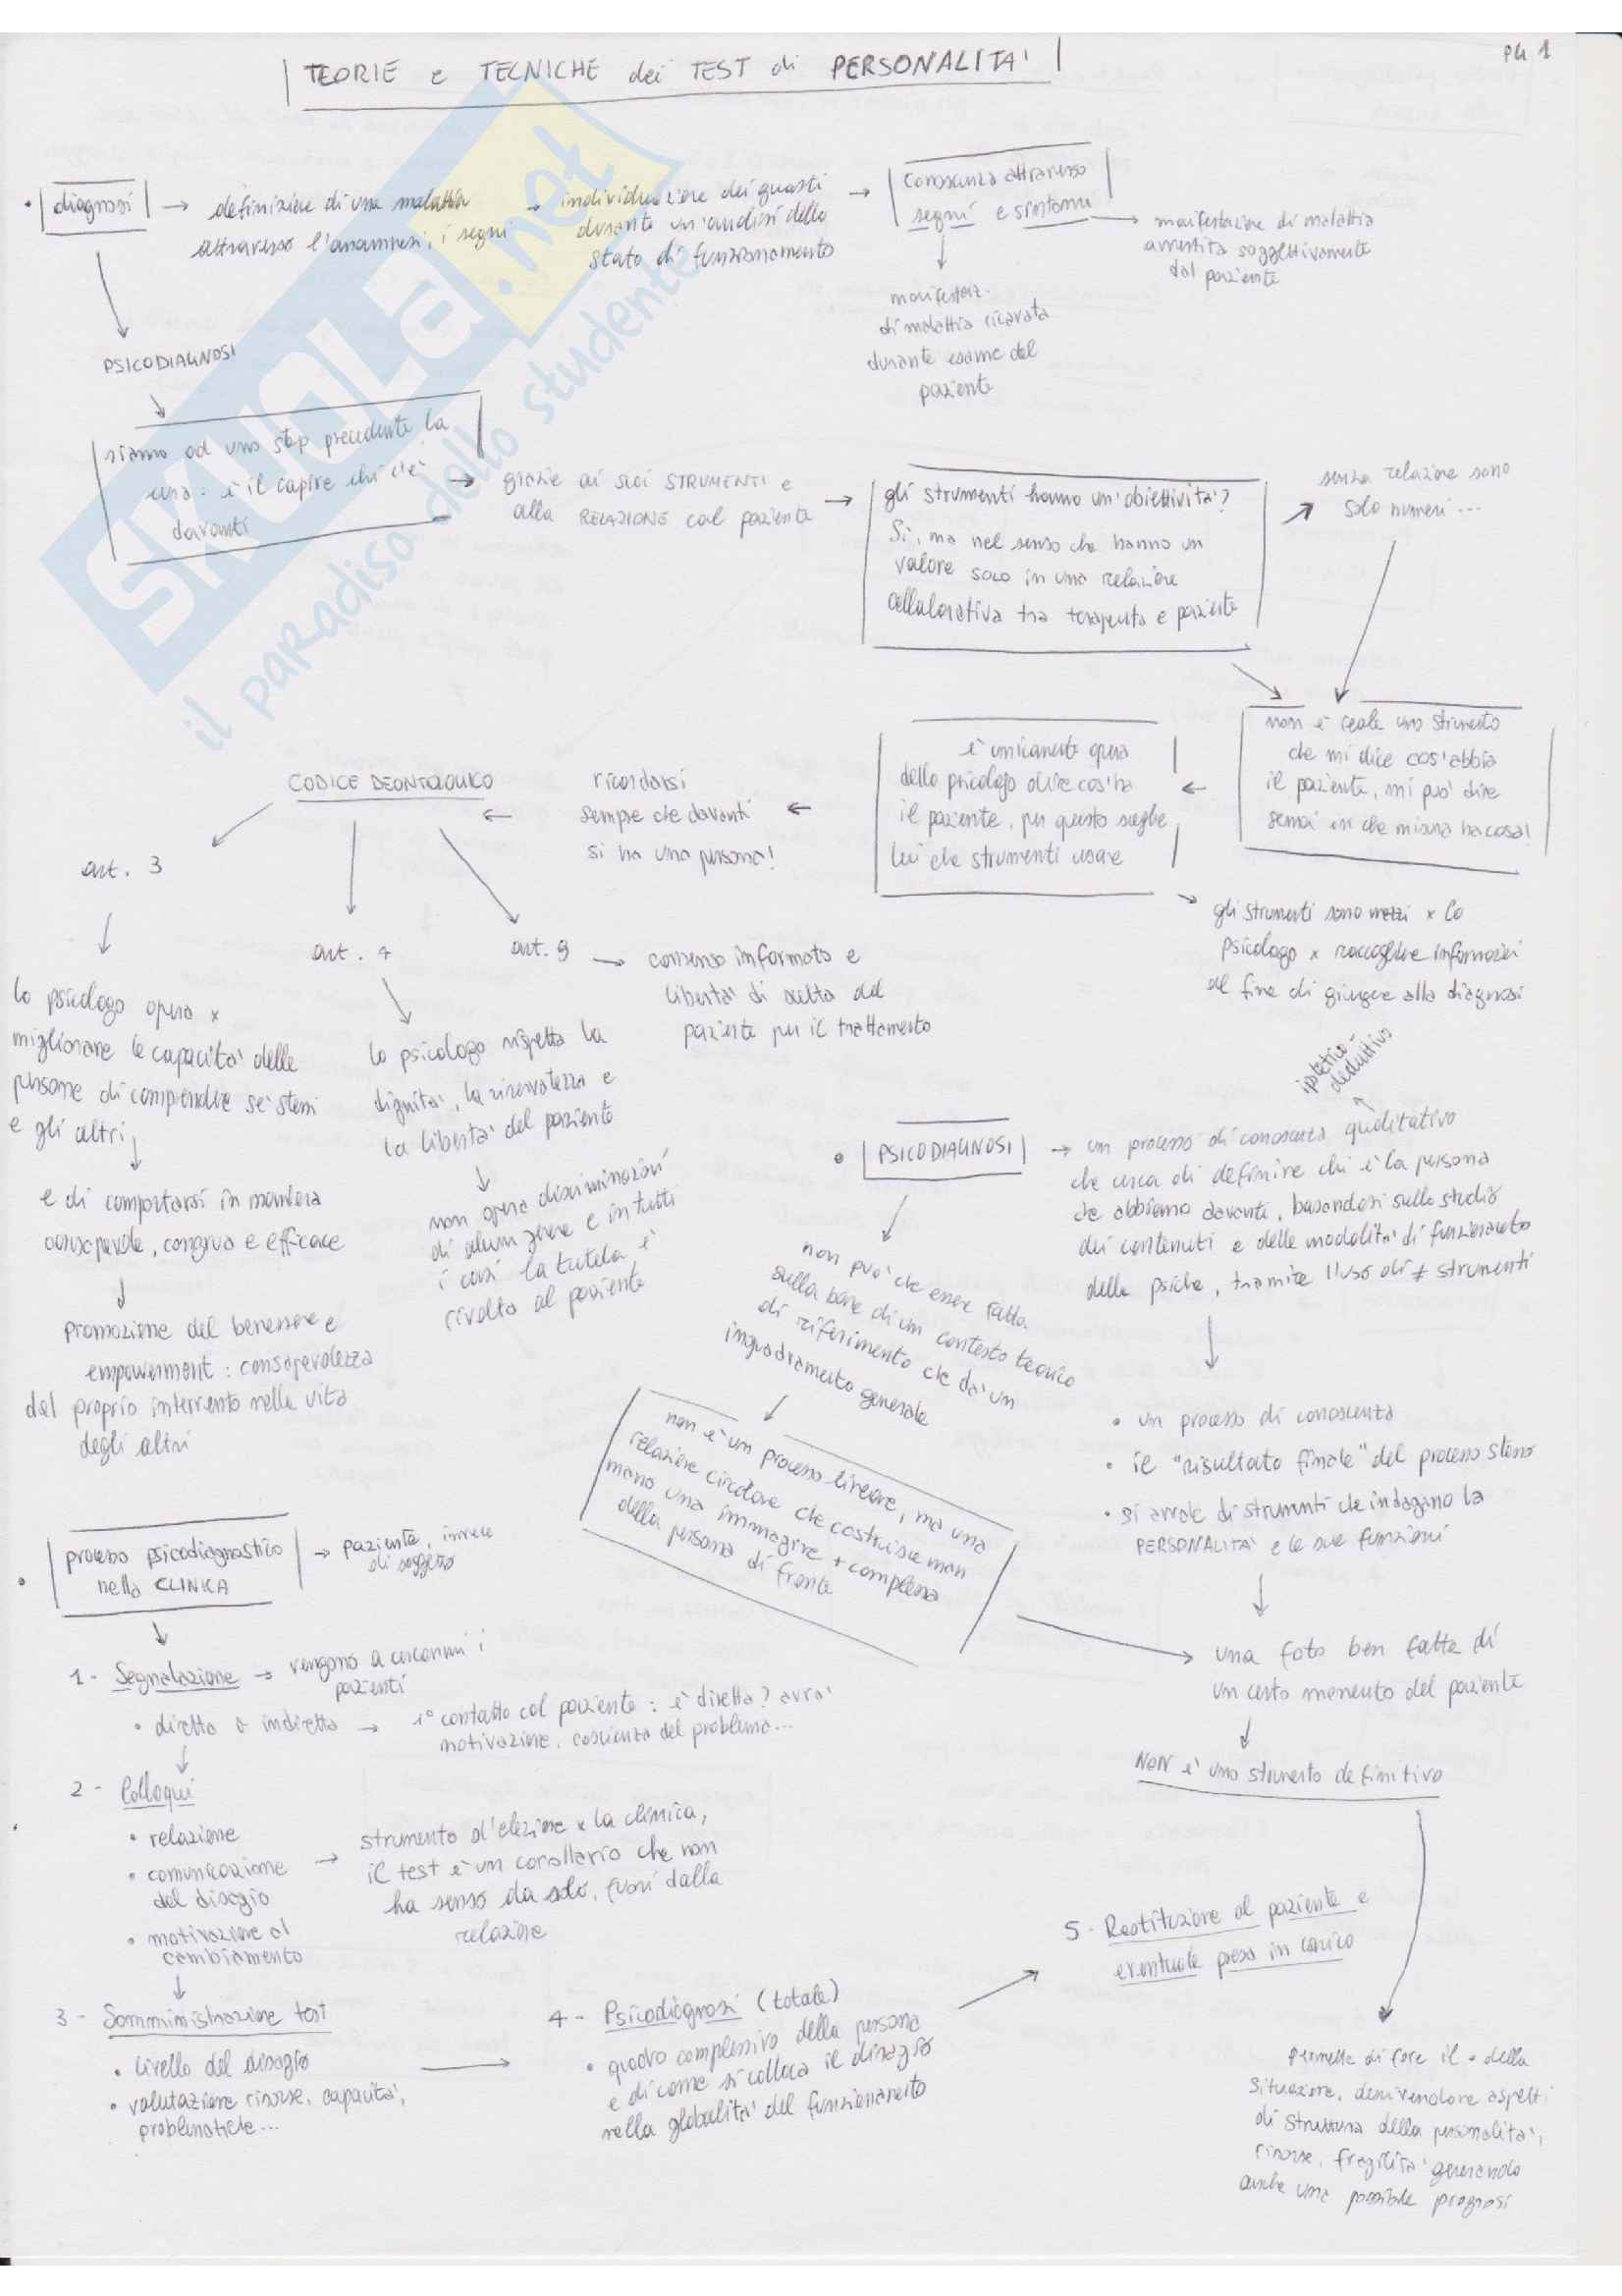 PG 1
TEORIE e TECNICHE dei TEST di PERSONALITA'
• diagnosi → definizione di una malattia
attraverso l'anamnesi, i segni
→ individuazione dei guasti
durante un'analisi dello
stato di funzionamento
→ conoscenza attraverso
segni e sintomi
→ manifestazione di malattia
avvertita soggettivamente
dal paziente
manifestaz.
di malattia ricavata
durante esame del
paziente
PSICODIAGNOSI
siamo ad uno step precedente la
cura: è il capire chi c'è
davanti
→ grazie ai suoi STRUMENTI e
alla RELAZIONE col paziente
→ gli strumenti hanno un'obiettività?
Sì, ma nel senso che hanno un
valore solo in una relazione
collaborativa tra terapeuta e paziente
senza relazione sono
solo numeri...
non è reale uno strumento
che mi dice cos'abbia
il paziente, mi può dire
semai in che misura ha cosa!
← è unicamente opera
dello psicologo dire cos'ha
il paziente, per questo sceglie
lui che strumenti usare
→ gli strumenti sono mezzi x lo
psicologo x raccogliere informazioni
al fine di giungere alla diagnosi
← ricordarsi
sempre che davanti
si ha una persona!
← CODICE DEONTOLOGICO
art. 3
lo psicologo opera x
migliorare le capacità delle
persone di comprendere sé stessi
e gli altri,
e di comportarsi in maniera
consapevole, congrua e efficace
promozione del benessere e
empowerment: consapevolezza
del proprio intervento nella vita
degli altri
art. 4
lo psicologo rispetta la
dignità, la riservatezza e
la libertà del paziente
non opera discriminazioni
di alcun genere e in tutti
i casi la tutela è
rivolta al paziente
art. 9 → consenso informato e
libertà di scelta del
paziente per il trattamento
• PSICODIAGNOSI → un processo di conoscenza qualitativo
ipotetico-
deduttivo
che cerca di definire chi è la persona
che abbiamo davanti, basandosi sullo studio
dei contenuti e delle modalità di funzionamento
della psiche, tramite l'uso di ≠ strumenti
non può che essere fatta
sulla base di un contesto teorico
di riferimento che dà un
inquadramento generale
non è un processo lineare, ma una
relazione circolare che costruisce man
mano una immagine + complessa
della persona di fronte
• un processo di conoscenza
• il "risultato finale" del processo stesso
• si avvale di strumenti che indagano la
PERSONALITA' e le sue funzioni
una foto ben fatta di
un certo momento del paziente
NON è uno strumento definitivo
permette di fare il • della
situazione, descrivendone aspetti
di struttura della personalità,
risorse, fragilità generando
anche una possibile prognosi
• processo psicodiagnostico
nella CLINICA
→ paziente, invece
di soggetto
1- Segnalazione → vengono a cercarmi i
pazienti
• diretta o indiretta → 1° contatto col paziente: è diretta? avrà
motivazione, coscienza del problema...
2- Colloqui
• relazione
• comunicazione
del disagio
• motivazione al
cambiamento
→ strumento d'elezione x la clinica,
il test è un corollario che non
ha senso da solo, fuori dalla
relazione
3- Somministrazione test
• livello del disagio
• valutazione risorse, capacità,
problematiche...
4- Psicodiagnosi (totale)
• quadro complessivo della persona
e di come si colloca il disagio
nella globalità del funzionamento
5- Restituzione al paziente e
eventuale presa in carico
SKUOLA.net
il paradiso dello studente